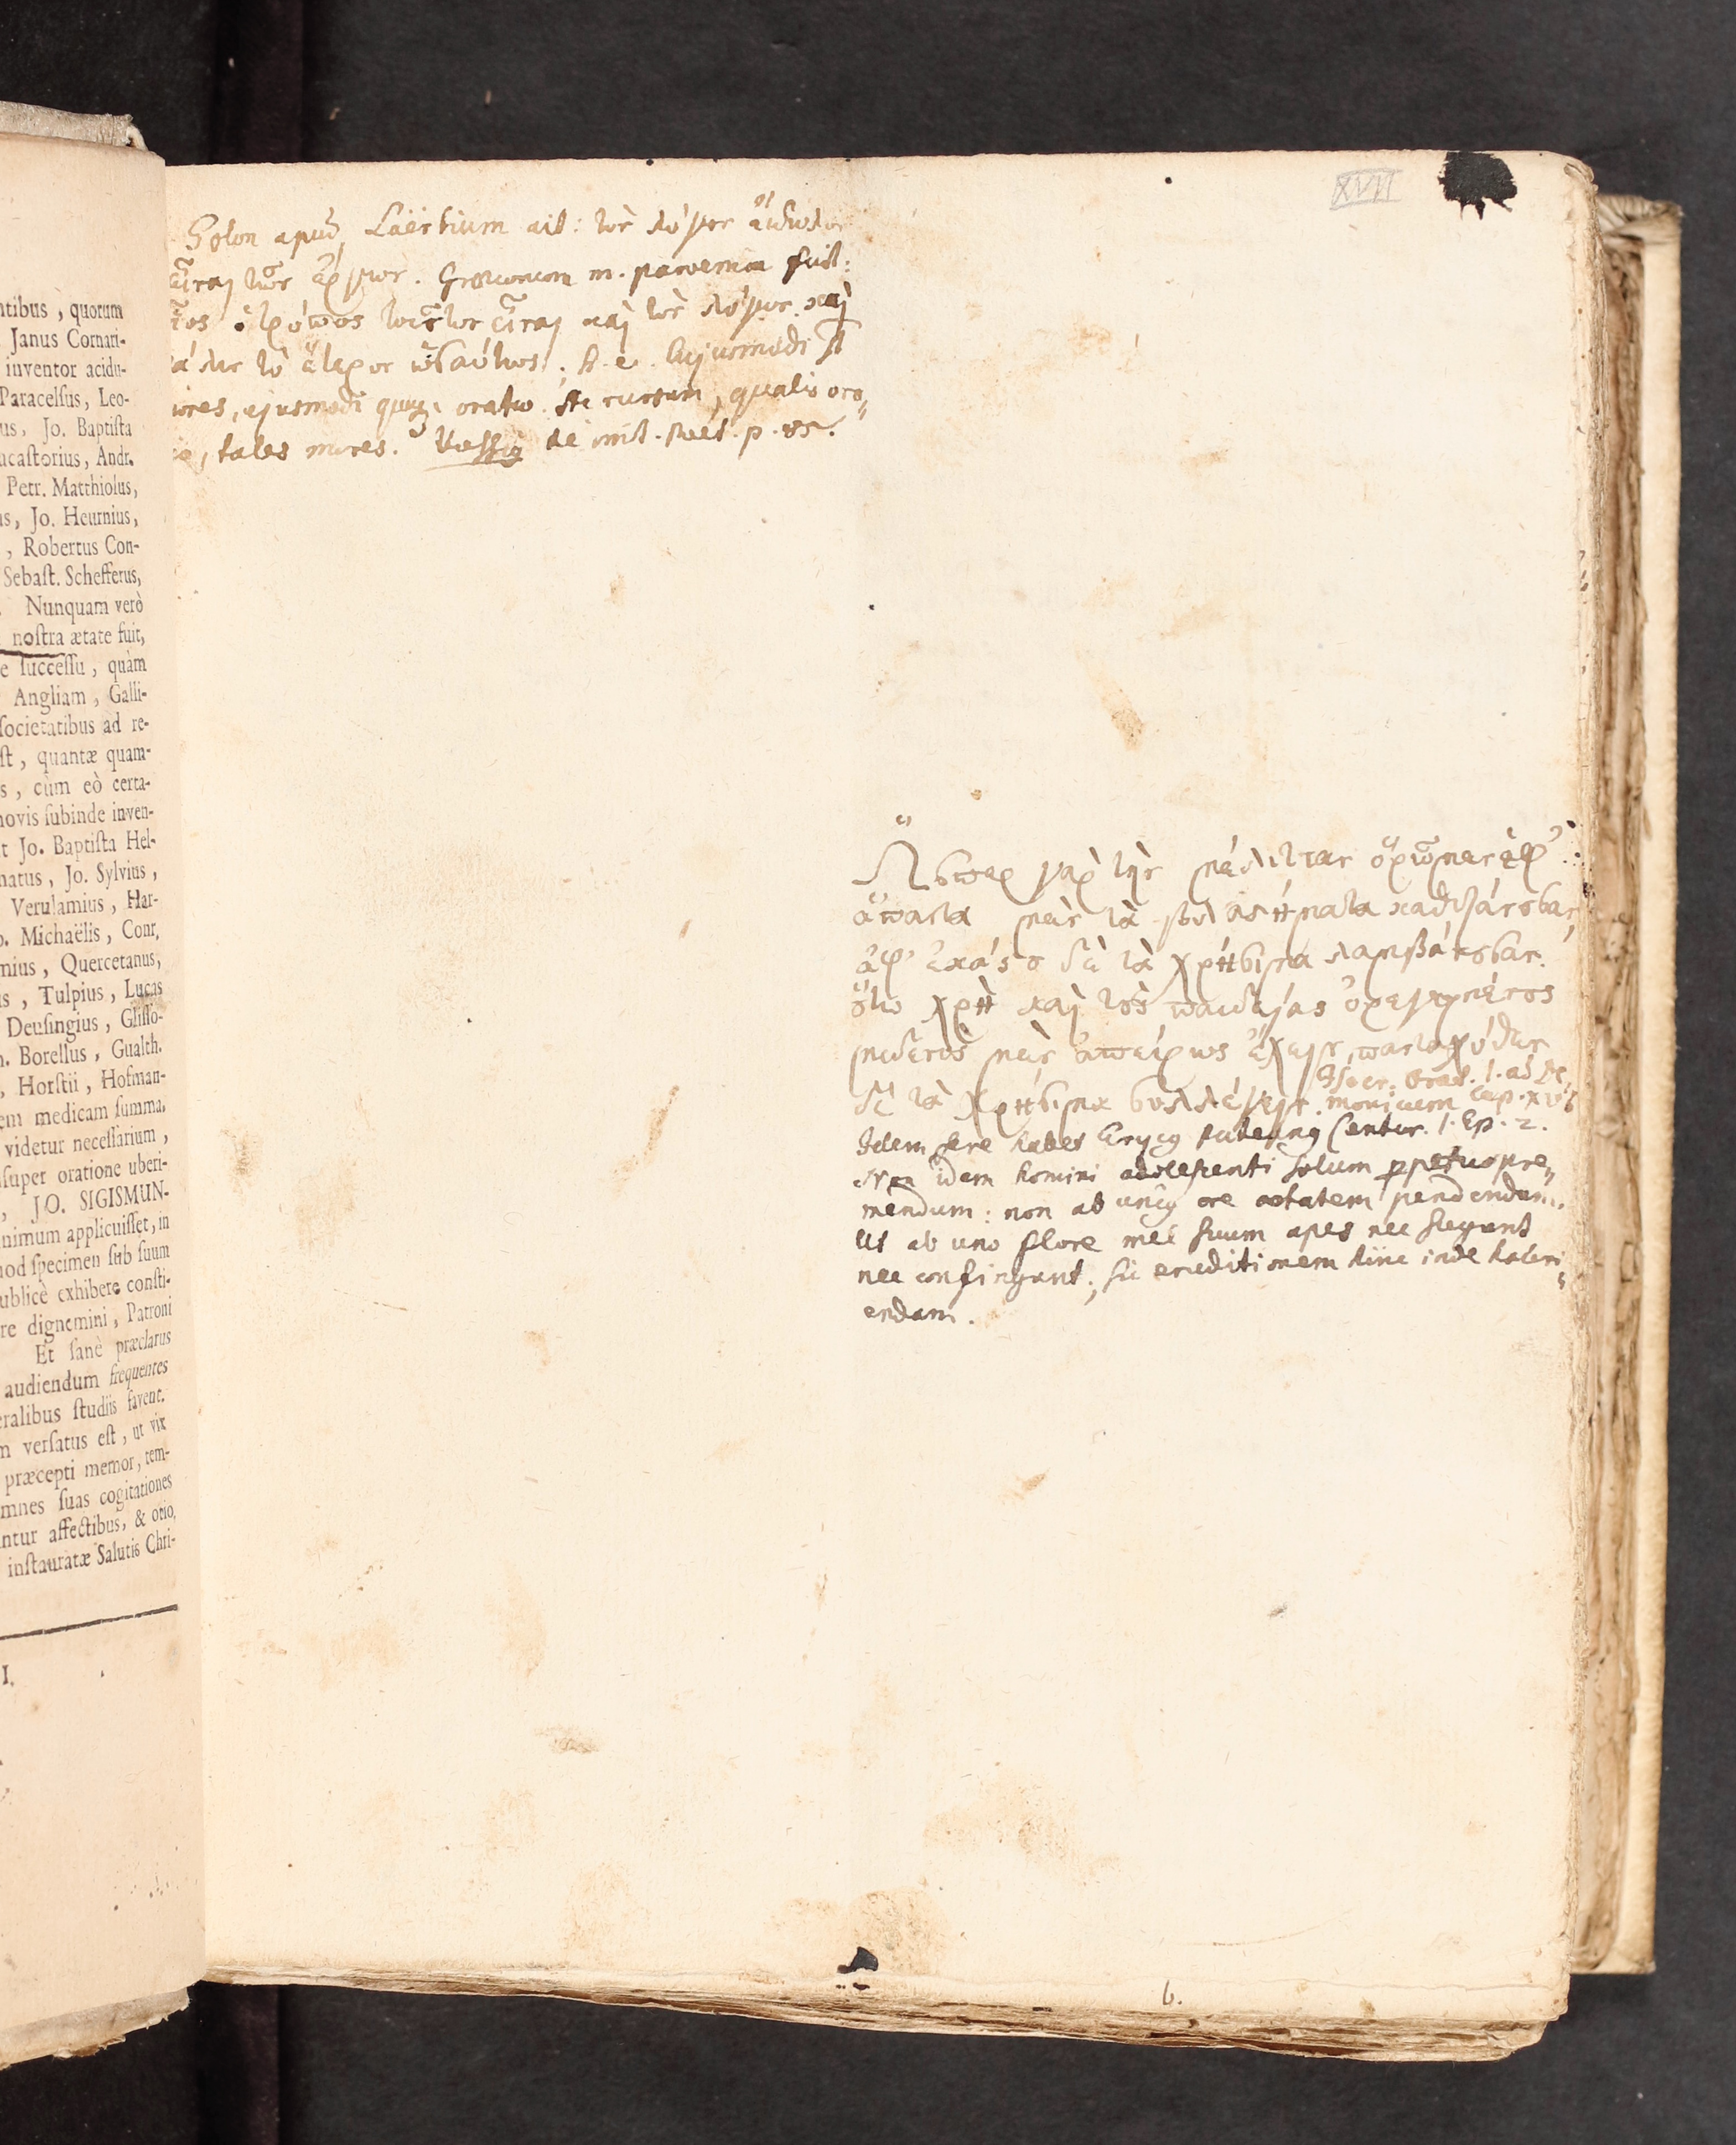 ntibus, quorum
Janus Cornari-
inventor acidu-
Paracelſus, Leo-
us, Jo. Baptiſta
ucaſtorius, Andr.
Petr. Matthiolus,
us, Jo. Heurnius,
, Robertus Con-
Sebaſt. Schefferus,
. Nunquam verò
noſtra ætate fuit,
e ſucceſſu, quàm
Angliam, Galli-
ſocietatibus ad re-
ſt, quantæ quam-
s, cùm eò certa-
novis ſubinde inven-
t Jo. Baptiſta Hel-
natus, Jo. Sylvius,
Verulamius, Har-
o. Michaëlis, Conr.
nius, Quercetanus,
us, Tulpius, Lucas
Deuſingius, Gliſſo-
n. Borellus, Gualth.
, Horſtii, Hofman-
em medicam ſumma.
videtur neceſſarium,
ſuper oratione uberi-
, JO. SIGISMUN-
nimum applicuiſſet, in
nod ſpecimen ſub ſuum
ublicè exhibere conſti-
re dignemini, Patroni
Et ſanè præclarus
audiendum frequentes
eralibus ſtudiis favent.
m verſatus eſt, ut vix
præcepti memor, tem-
mnes ſuas cogitationes
ntur affectibus, & otio,
inſtauratæ Salutis Chri-
I.
Solon apud Laërtium ait: τὸν λόγον εἴδωλον
εἶναι τῶν ἔργων. Græcorum m. parœmia fuit:
ῖος ὁ τρόπος τοιοῦτον εἶναι καὶ τὸν λόγον. καὶ
άλιν τὸ ἕτερον ὡσαύτως. h. e. Cujusmodi st
mores, ejusmodi quoque oratio. Ac rursum, qualis ora-
io, tales mores. Vossig de inst. Rhet. p. 85.
XVII
Ὥσπερ γὰρ τὴν μέλιτταν ὁρῶμεν ἐφ'
ἅπαντα μὲν τὰ βλαστήματα καθιζάνουσαν,
ἀφ' ἑκάστου δὲ τὰ χρήσιμα λαμβάνουσαν.
οὕτω χρὴ καὶ τοὺς παιδείας ὀρεγομένους
μηδενὸς μὲν ἀπείρως ἔχειν, πανταχόθεν
δὲ τὰ χρήσιμα συλλέγειν. Isocr. Orat. 1. ad De-
monicum Cap. XVI
Idem fere habet Erycg Puteang Centur. 1. Ep. 2.
Non idem homini adolescenti solum perpetuo pre-
mendum: non ab unig ore ætatem pendendum.
Ut ab uno flore mel suum apes nec sugunt
nec confingunt; sic eruditionem hinc inde hauri-
endam.
b.